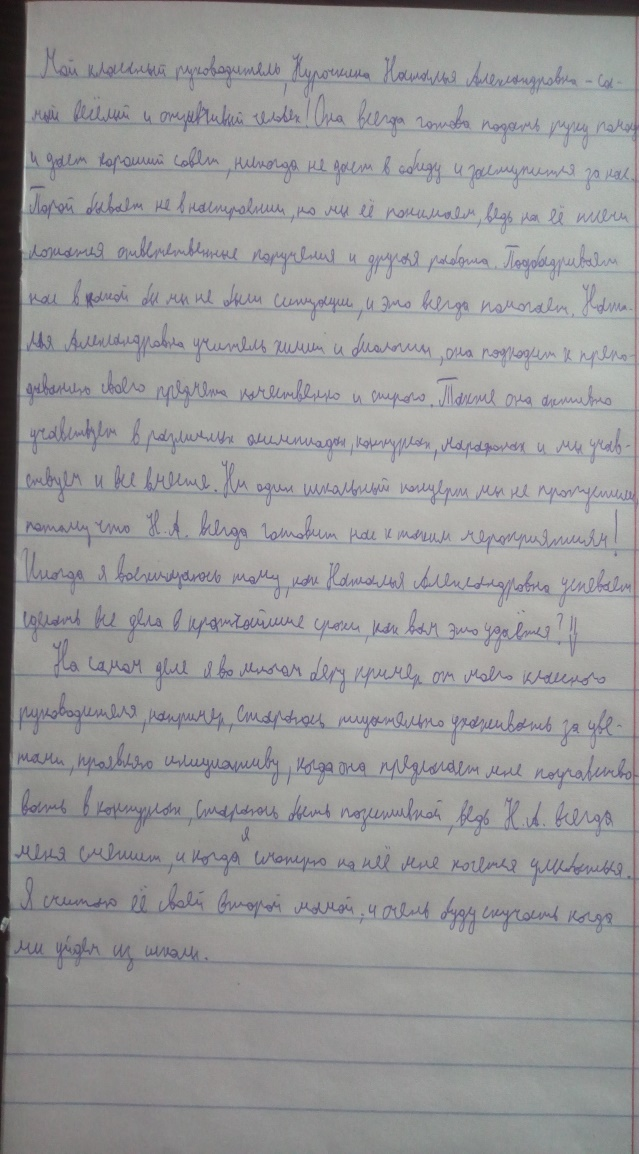 Мой классный руководитель, Курочкина Наталья Александровна – са-
мый весёлый и отзывчивый человек! Она всегда готова подать руку помощи
и дает хороший совет, никогда не даст в обиду и заступится за нас.
Порой бывает не в настроении, но мы её понимаем, ведь на её плечи
ложатся ответственные поручения и другая работа. Подбадривает
нас в какой бы мы не были ситуации, и это всегда помогает. Ната-
лья Александровна учитель химии и биологии, она подходит к препо-
даванию своего предмета качественно и строго. Также она активно
учавствует в различных олимпиадах, конкурсах, марафонах и мы учав-
ствуем и все вместе. Ни один школьный концерт мы не пропустили,
потому что Н.А. всегда готовит нас к таким мероприятиям!
Иногда я восхищаюсь тому, как Наталья Александровна успевает
сделать все дела в кратчайшие сроки, как вам это удаётся?!!
На самом деле я во многом беру пример от моего классного
руководителя, например, стараюсь тщательно ухаживать за цве-
тами, проявляю инициативу, когда она предлагает мне поучавство-
вать в конкурсах, стараюсь быть позитивной, ведь Н.А. всегда
меня смешит, и когда я смотрю на неё мне хочется улыбаться.
Я считаю её своей второй мамой, и очень буду скучать когда
мы уйдем из школы.